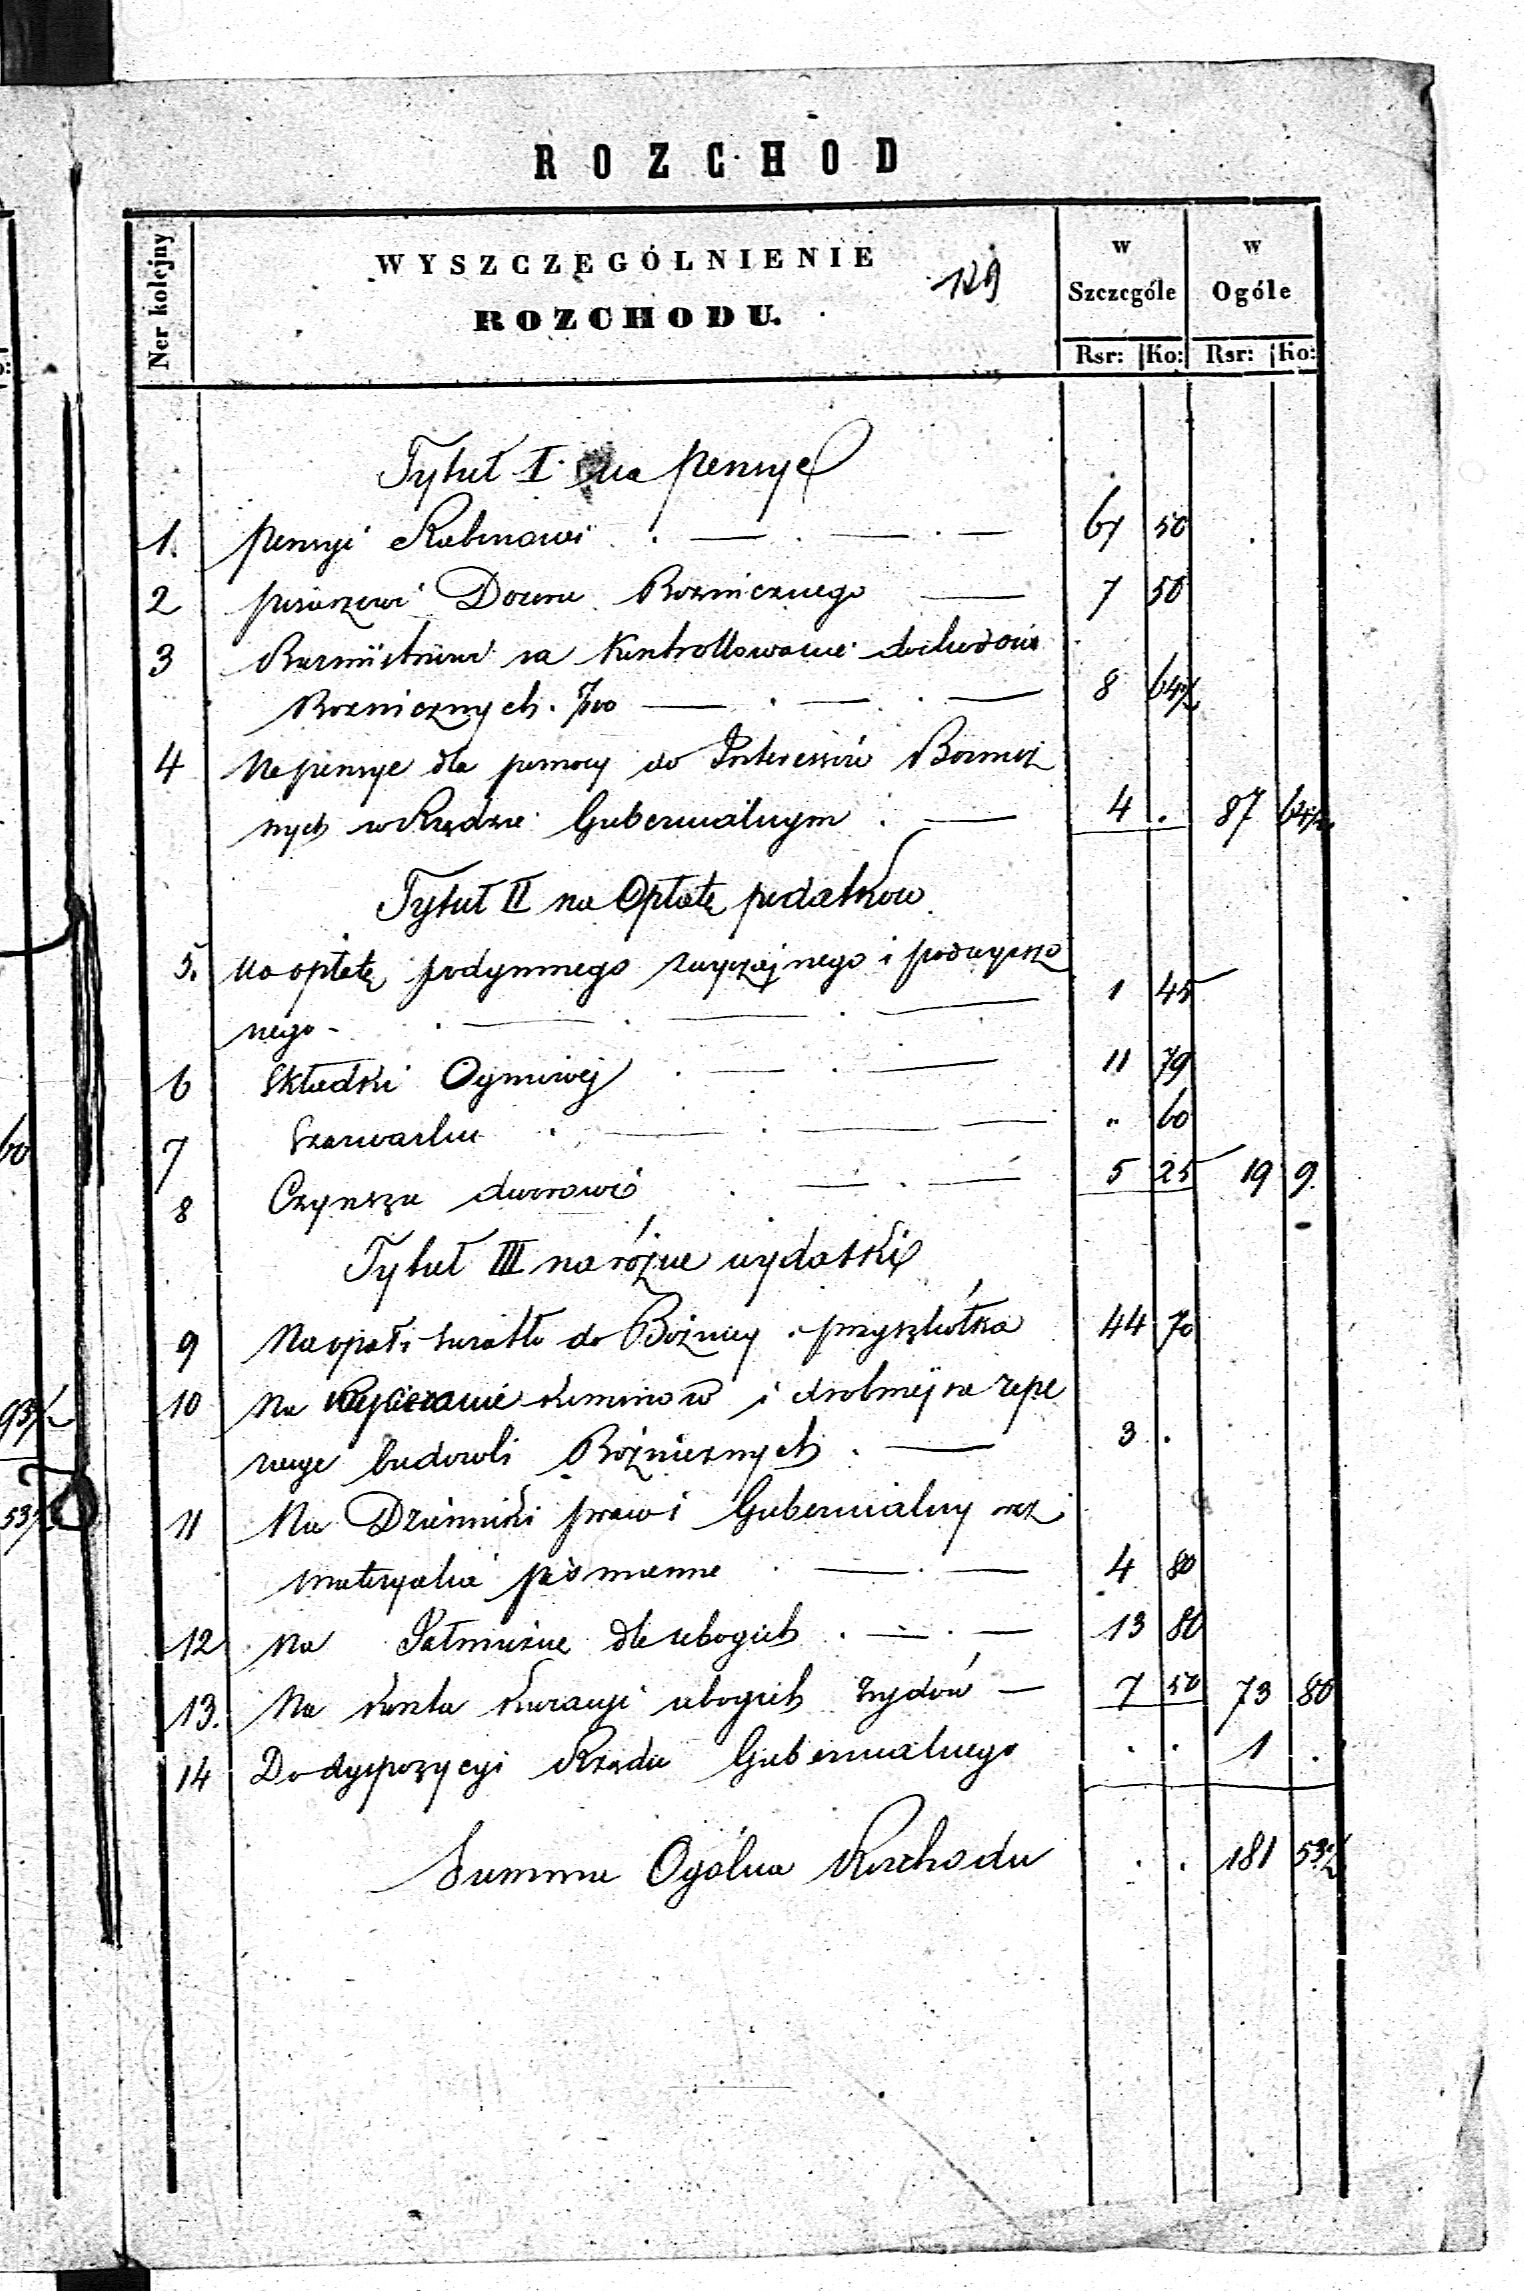 ROZCHOD
Ner kolejny
WYSZCZEGÓLNIENIE
ROZCHODU.
129
w Szczególe
w Ogóle
Rsr: Ko: Rsr: Ko:
Tytuł I na pensye
1. pensyi Rabinowi 67 50
2 pisarzowi Dozoru Boznicznego 7 50
3 Burmistrzowi za Kontrollowanie dochodów
Boznicznych 8 64½
4 Na pensye dla pomocy do Interessów Boznicz
nych w Rządzie Gubernialnym 4 . 87 64½
Tytuł II na Opłatę podatków
5. Na opłatę podymnego zwyczajnego i podwyższo
nego 1 45
6 Składki Ogniowej 11 79
7 Szarwarku " 60
8 Czynszu dworowi 5 25 19 9
Tytuł III na różne wydatki
9 Na opał i światło do Bóżnicy i przyszkółka 44 70
10 Na Wycieranie kominów i drobniejsze repe
racye budowli Bóżnicznych 3 .
11 Na Dzienniki praw i Gubernialny oraz
materyalia piśmienne 4 80
12 Na Jałmużnę dla ubogich 13 80
13. Na koszta kuracyi ubogich żydów 7 50 73 80
14 Do dyspozycyi Rządu Gubernialnego . . 1 .
Summa Ogólna Rozchodu . . 181 53½
60
93½
53½